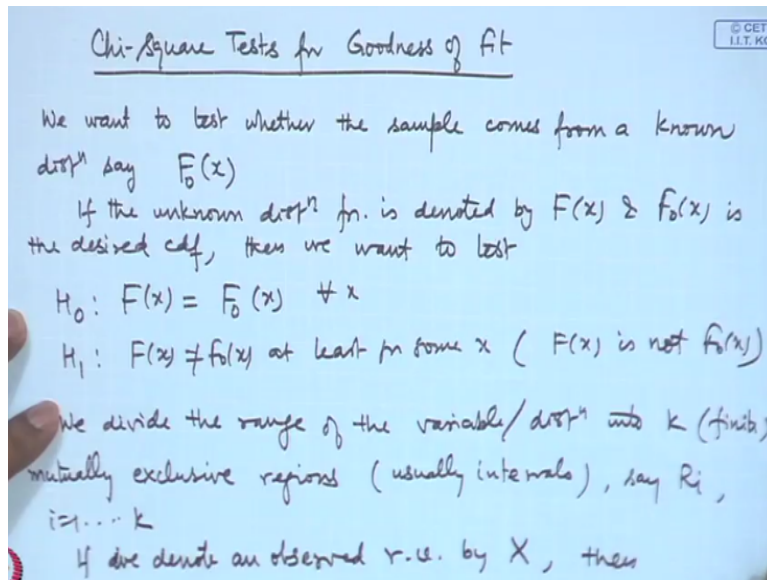 © CET
I.I.T. KG
Chi-Square Tests for Goodness of fit
We want to test whether the sample comes from a known
distⁿ say F₀(x)
If the unknown distⁿ fn. is denoted by F(x) & F₀(x) is
the desired cdf, then we want to test
H₀: F(x) = F₀(x) ∀ x
H₁: F(x) ≠ F₀(x) at least for some x ( F(x) is not F₀(x))
We divide the range of the variable/distⁿ into k (finite)
mutually exclusive regions (usually intervals), say Ri,
i=1....k
If we denote an observed r.v. by X, then